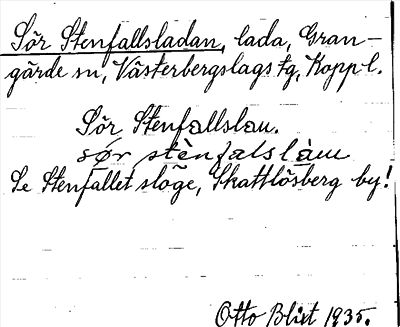 Sör Stenfallsladan, lada, Gran-
gärde sn, Västerbergslags tg, Kopp l.
Sör Stenfallslan.
sør stènfalslàm
Se Stenfallet slöge, Skattlösberg by!
Otto Blixt 1935.